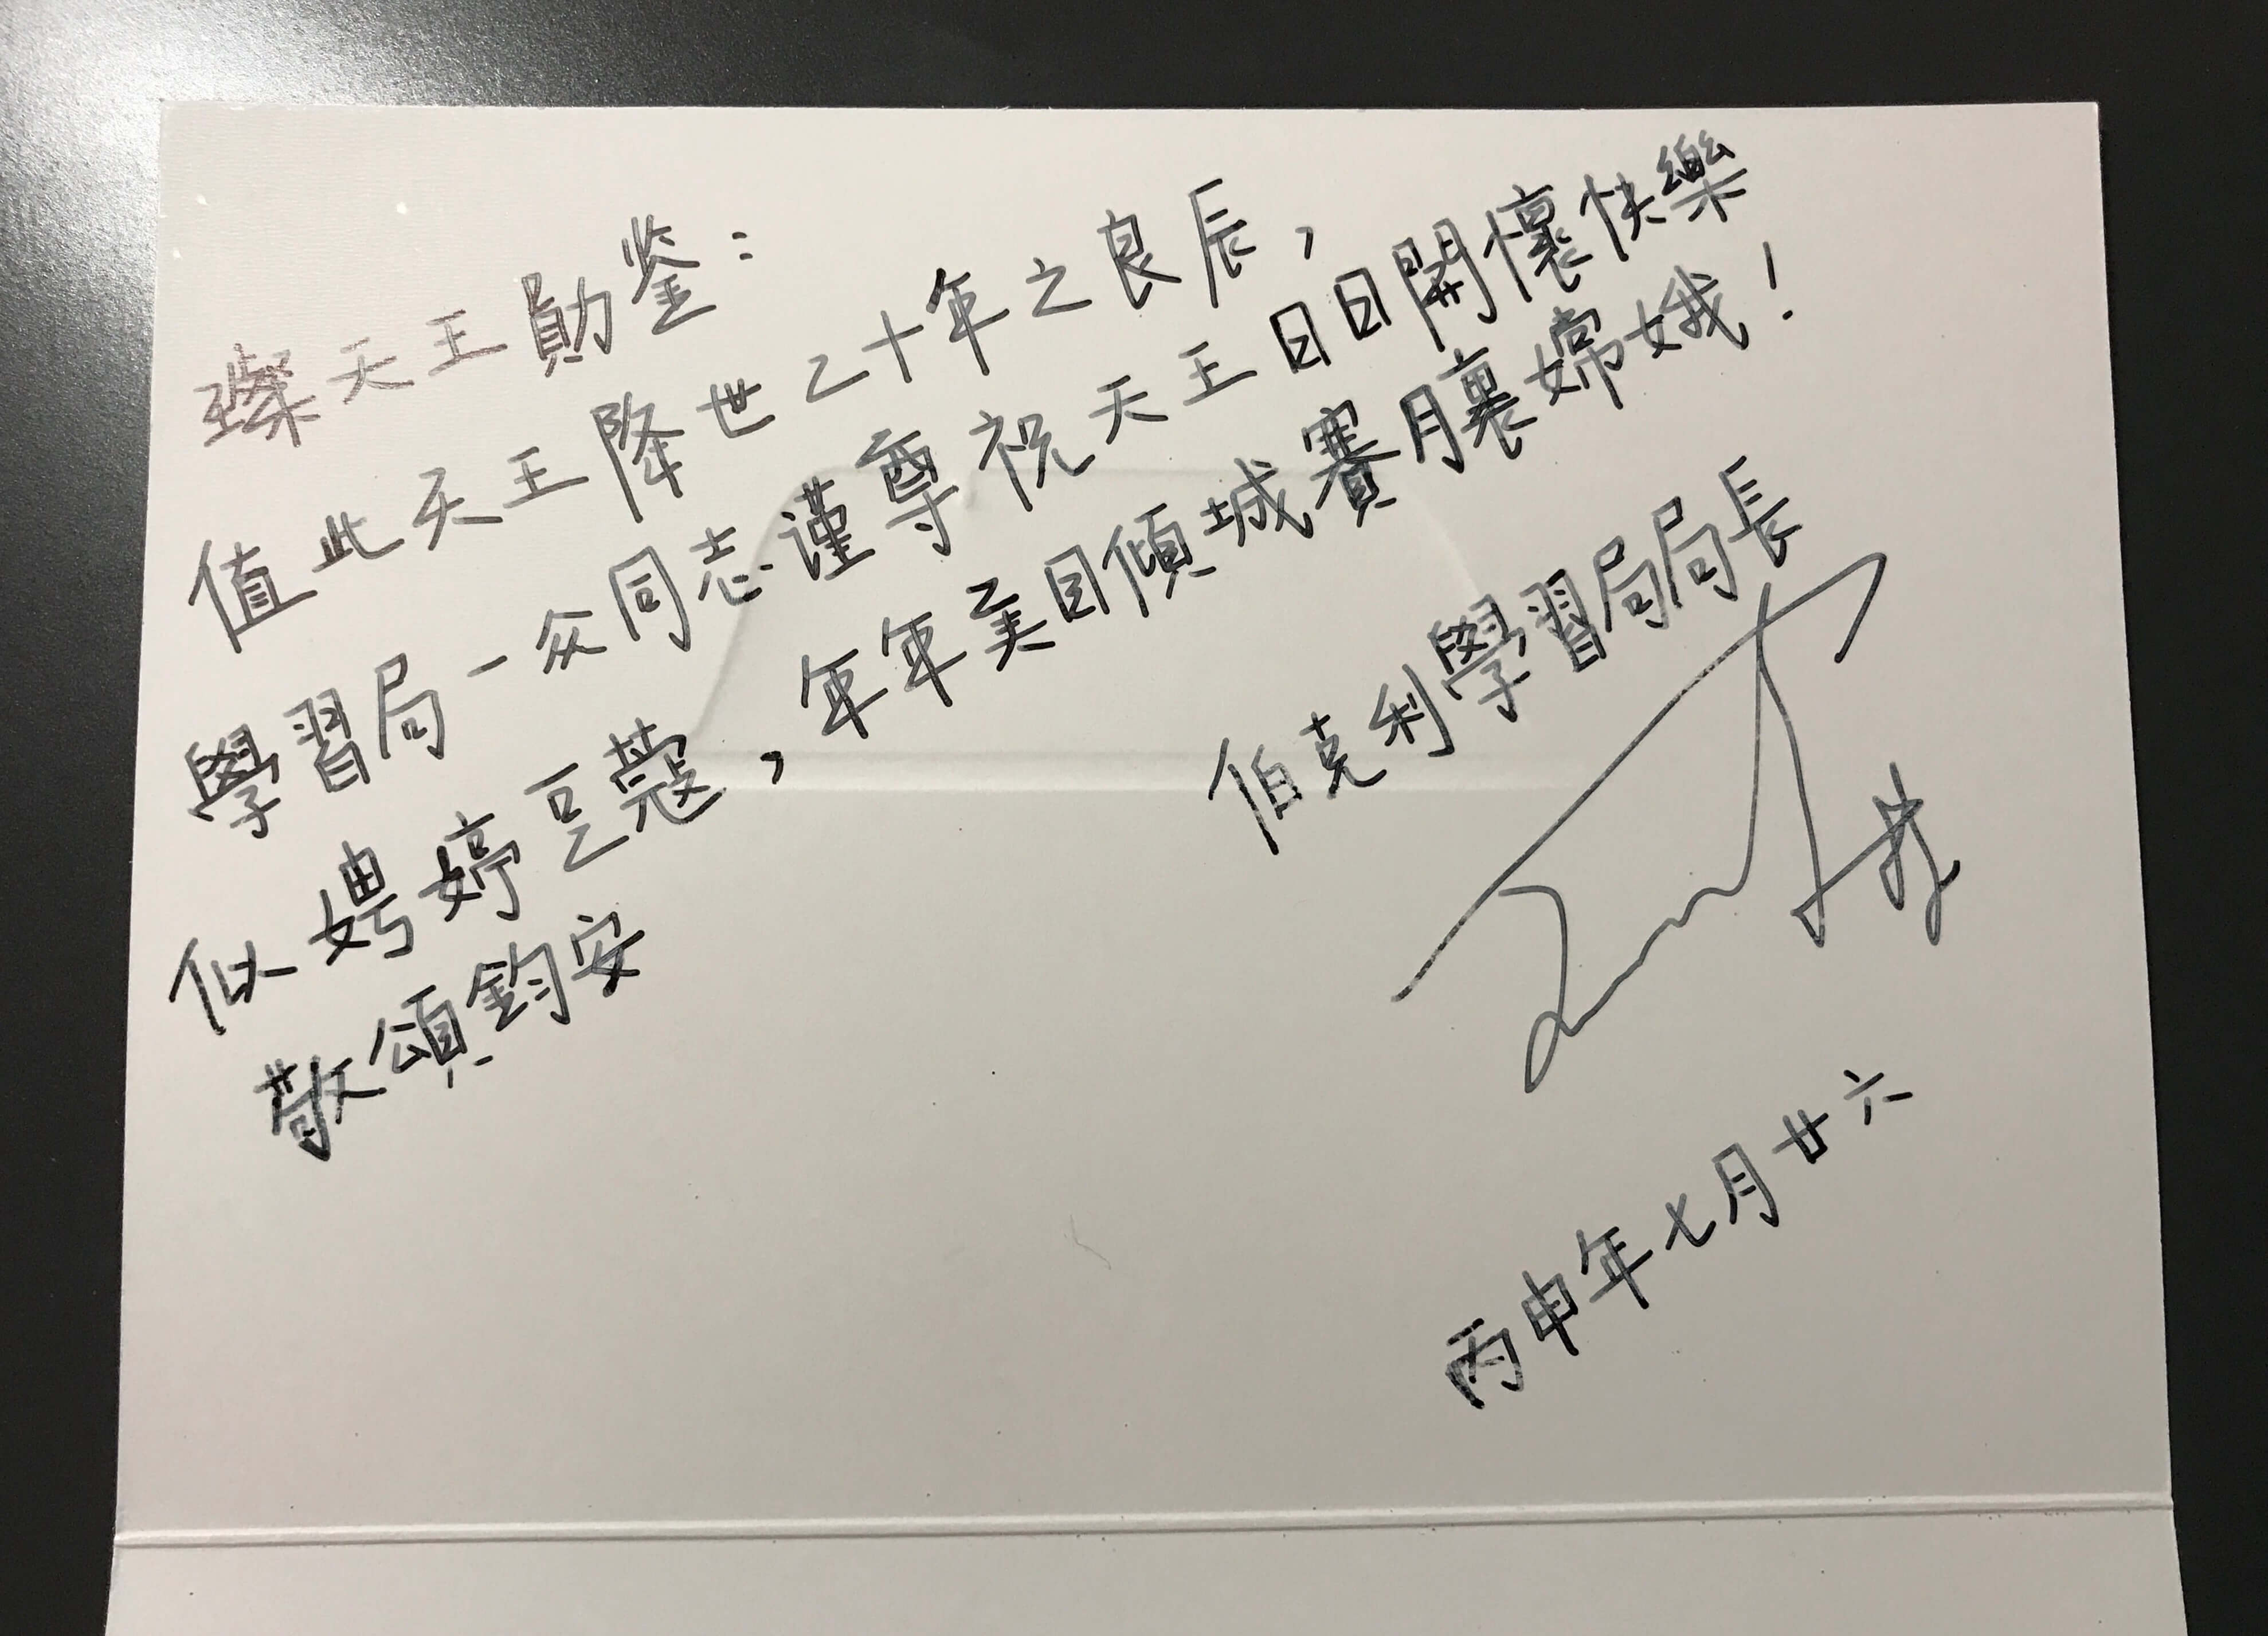 璨天王勛鉴：
值此天王降世乙十年之良辰，
學習局一众同志谨尊祝天王日日開懷快樂
似娉婷豆蔻，年年美目傾城賽月裏嫦娥！
敬頌鈞安
伯克利學習局局長
丙申年七月廿六